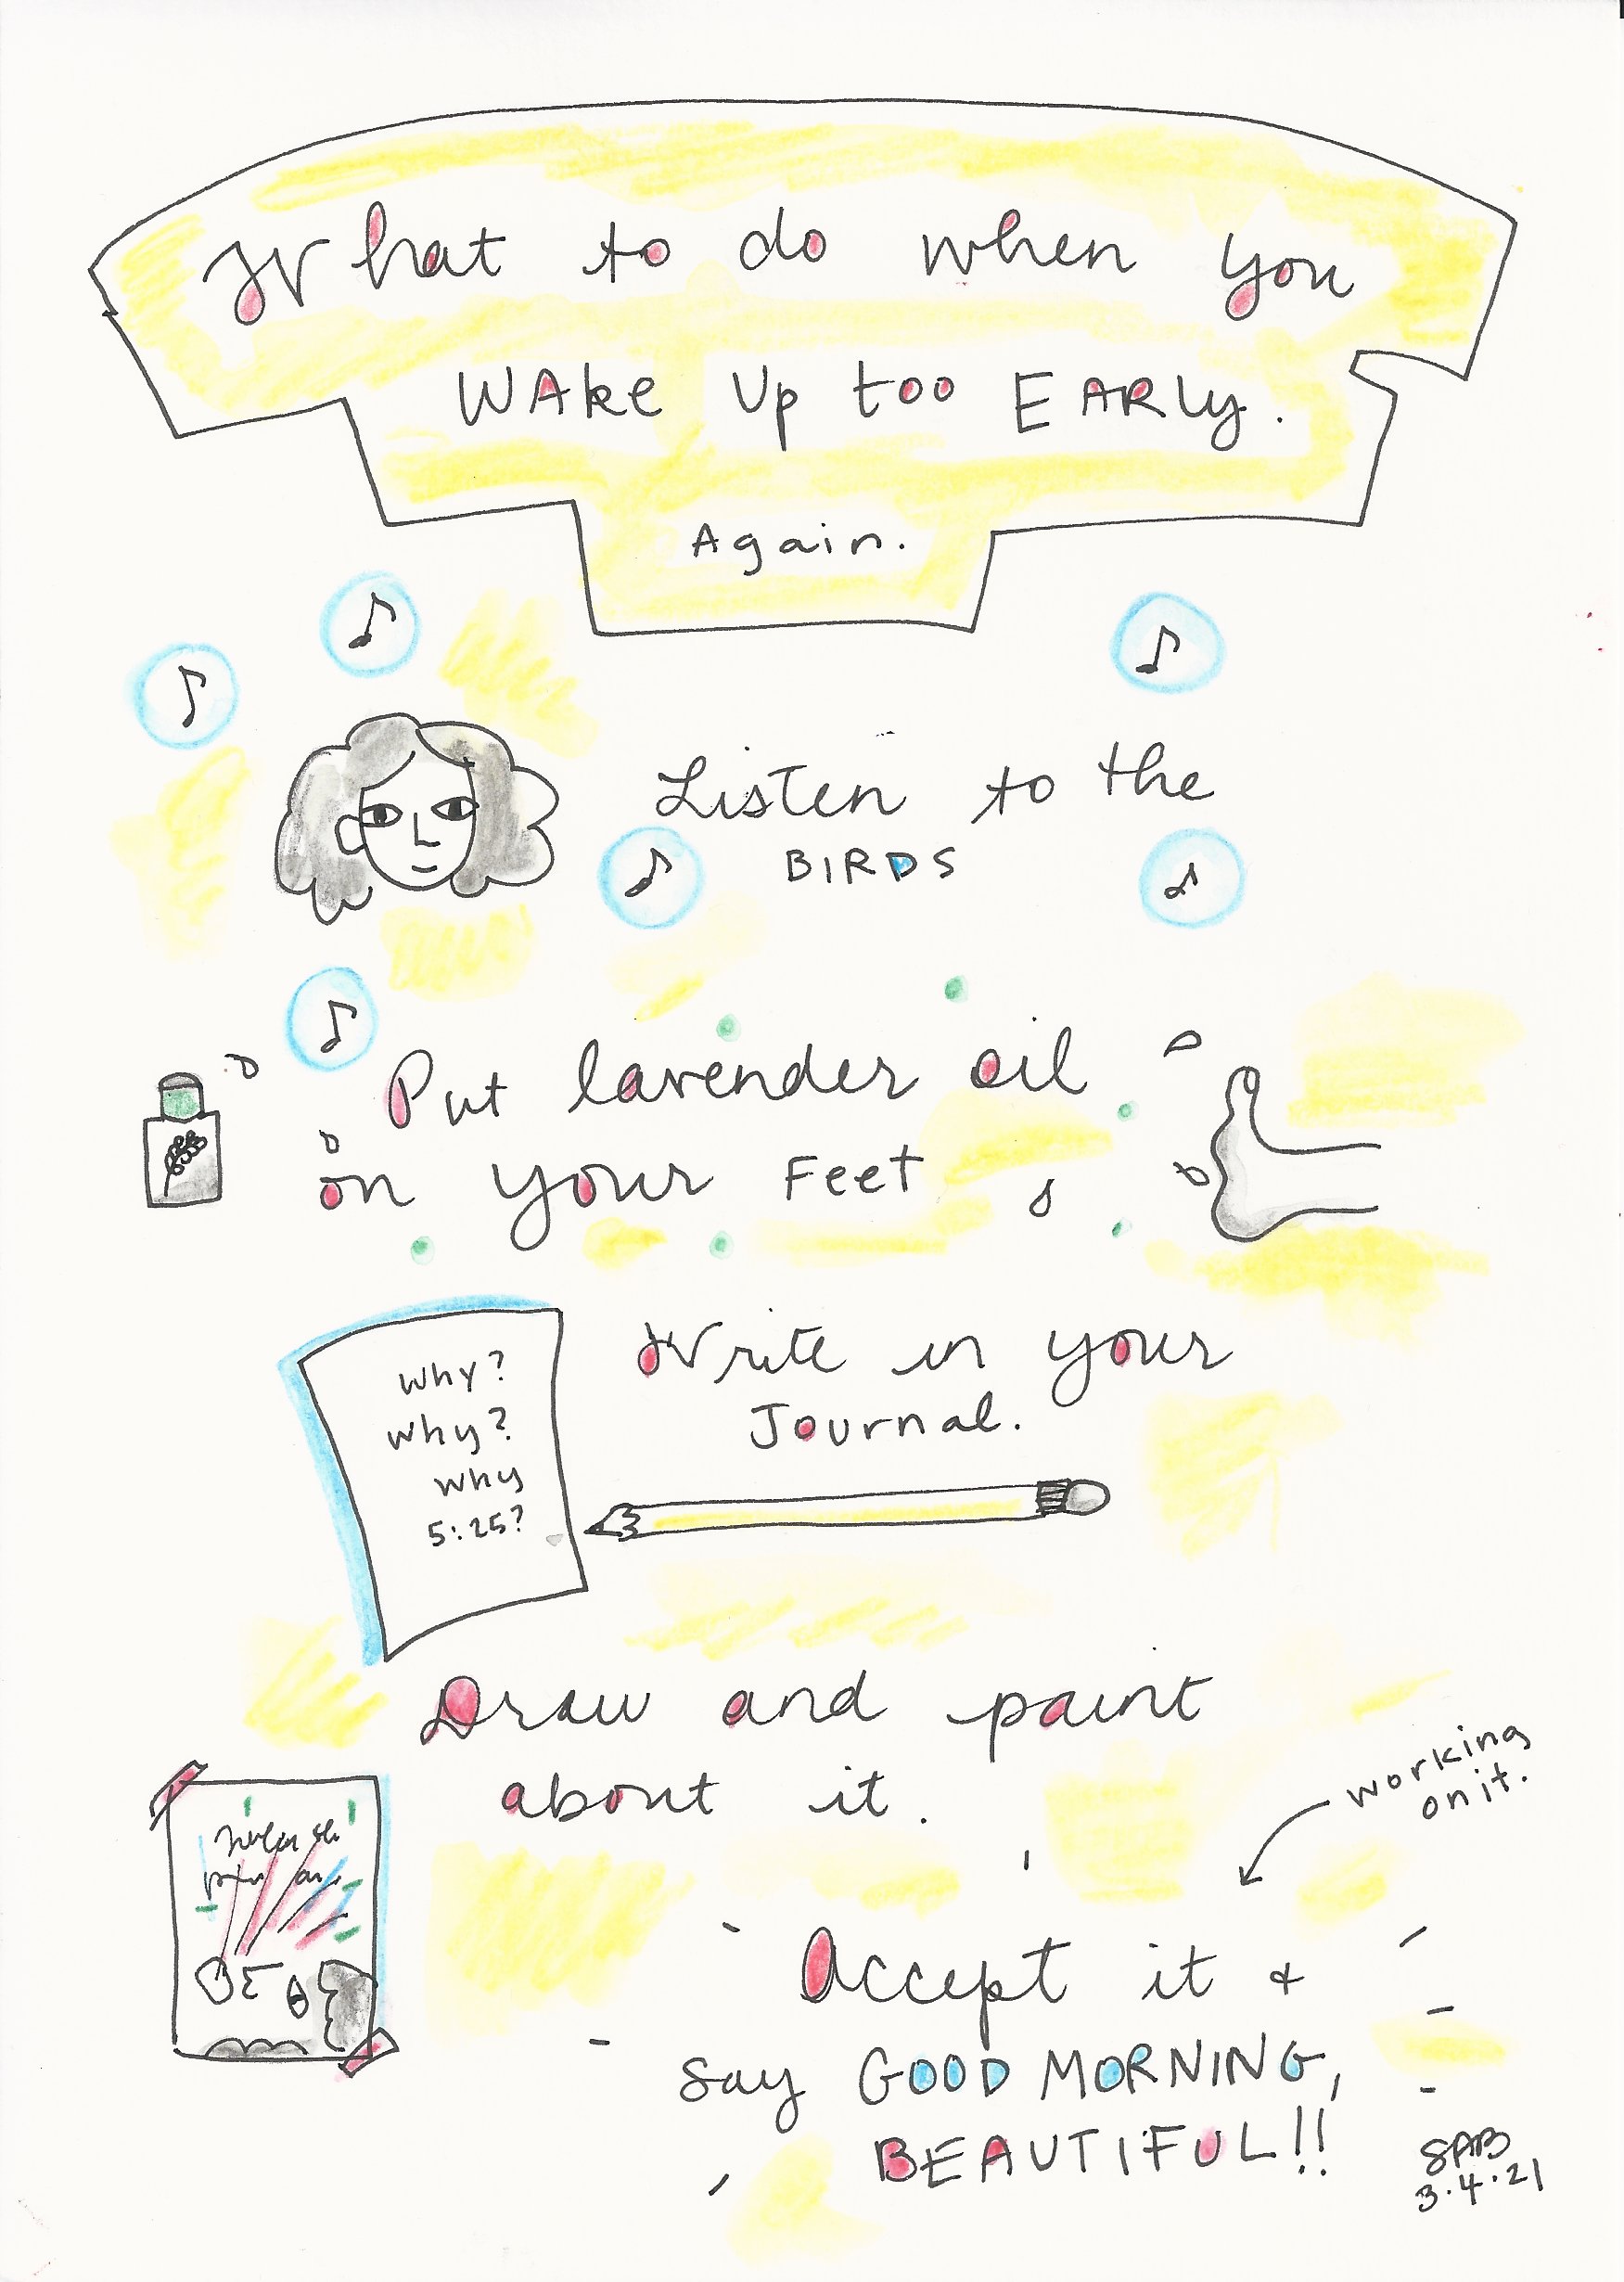 What to do when you
WAke Up too EARLy.
Again.
Listen to the
BIRDS
Put lavender oil
on your Feet
Write in your
Journal.
Why?
why?
why
5:25?
Draw and paint
about it.
working
on it.
Accept it +
say GOOD MORNING,
BEAUTIFUL!!
SAB
3.4.21